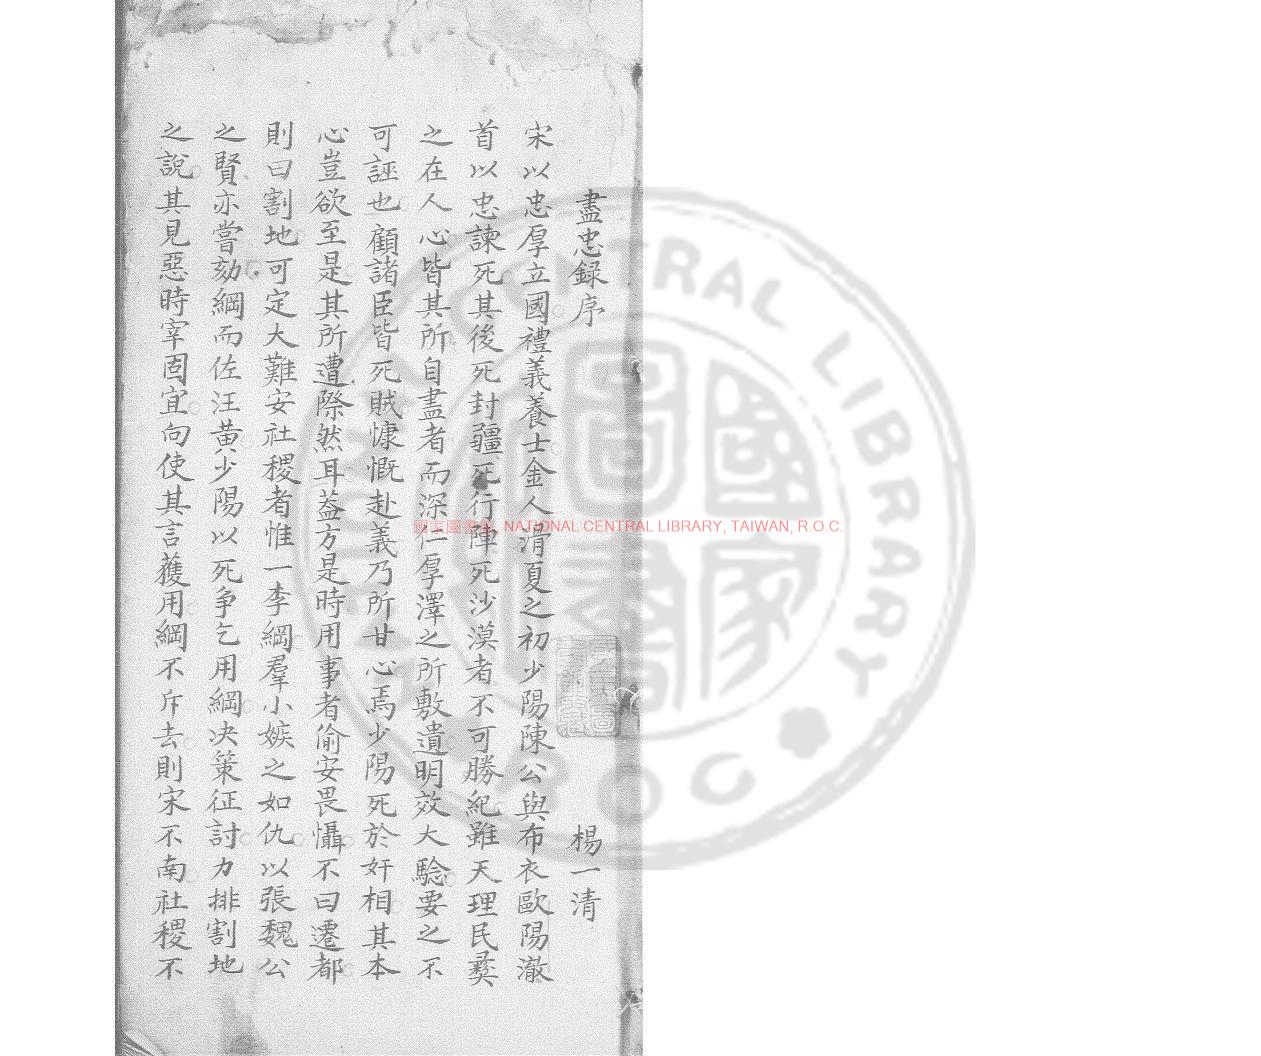 盡忠録序 楊一清
宋以忠厚立國禮義養士金人滑夏之初少陽陳公與布衣歐陽澈
首以忠諫死其後死封疆死行陣死沙漠者不可勝紀雖天理民彛
之在人心皆其所自盡者而深仁厚澤之所敷遺明效大驗要之不
可誣也顧諸臣皆死賊慷慨赴義乃所甘心焉少陽死於奸相其本
心豈欲至是其所遭際然耳葢方是時用事者偷安畏懾不曰遷都
則曰割地可定大難安社稷者惟一李綱羣小嫉之如仇以張魏公
之賢亦嘗劾綱而佐汪黄少陽以死争乞用綱决策征討力排割地
之說其見惡時宰固宜向使其言獲用綱不斥去則宋不南社稷不
國立圖書館 NATIONAL CENTRAL LIBRARY, TAIWAN, R.O.C.
CENTRAL LIBRARY
ROC
國家圖書館